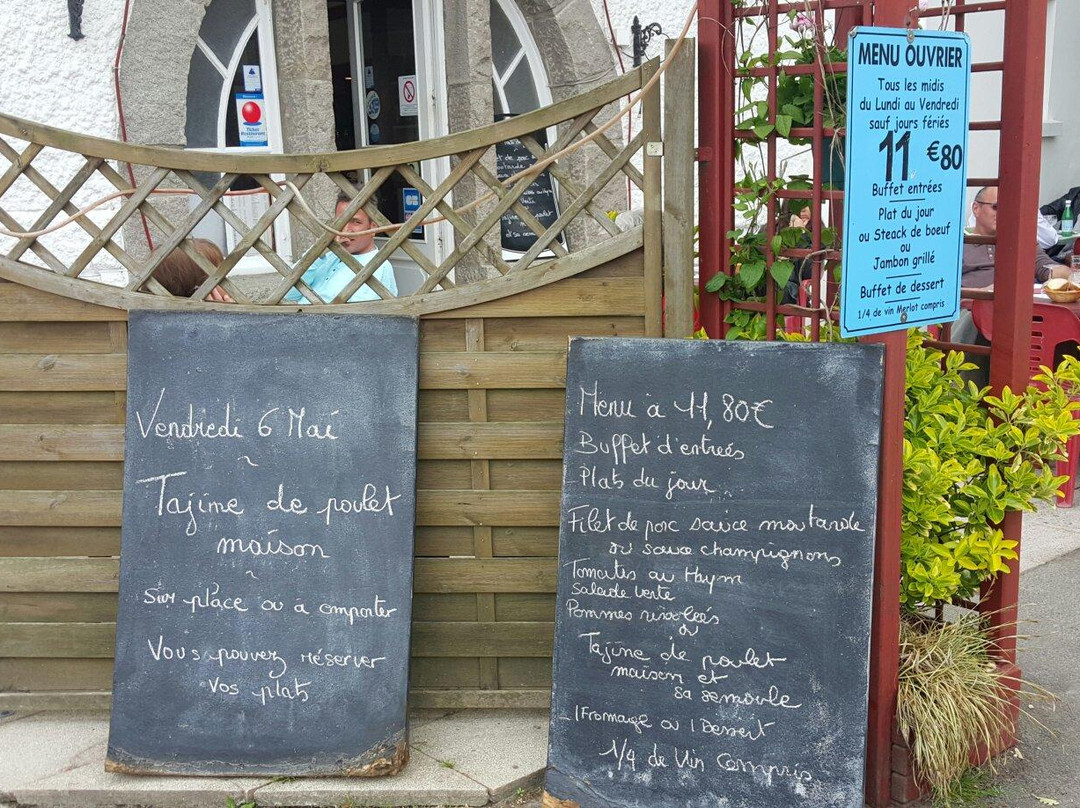 MENU OUVRIER
Tous les midis
du Lundi au Vendredi
sauf jours fériés
11 €80
Buffet entrées
Plat du jour
ou Steack de boeuf
ou
Jambon grillé
Buffet de dessert
1/4 de vin Merlot compris
Vendredi 6 Mai
~
Tajime de poulet
maison
~
Sur place ou à emporter
Vous pouvez réserver
vos plats
Menu à 11,80€
Buffet d'entreés
- Plats du jour
Filet de porc sauce moutarde
ou sauce champignons
Tomates au Thym
Salade verte
Pommes rissoleés
ou
Tajime de poulet
maison et
sa semoule
- 1 Fromage ou 1 Dessert
1/4 de Vin Compris